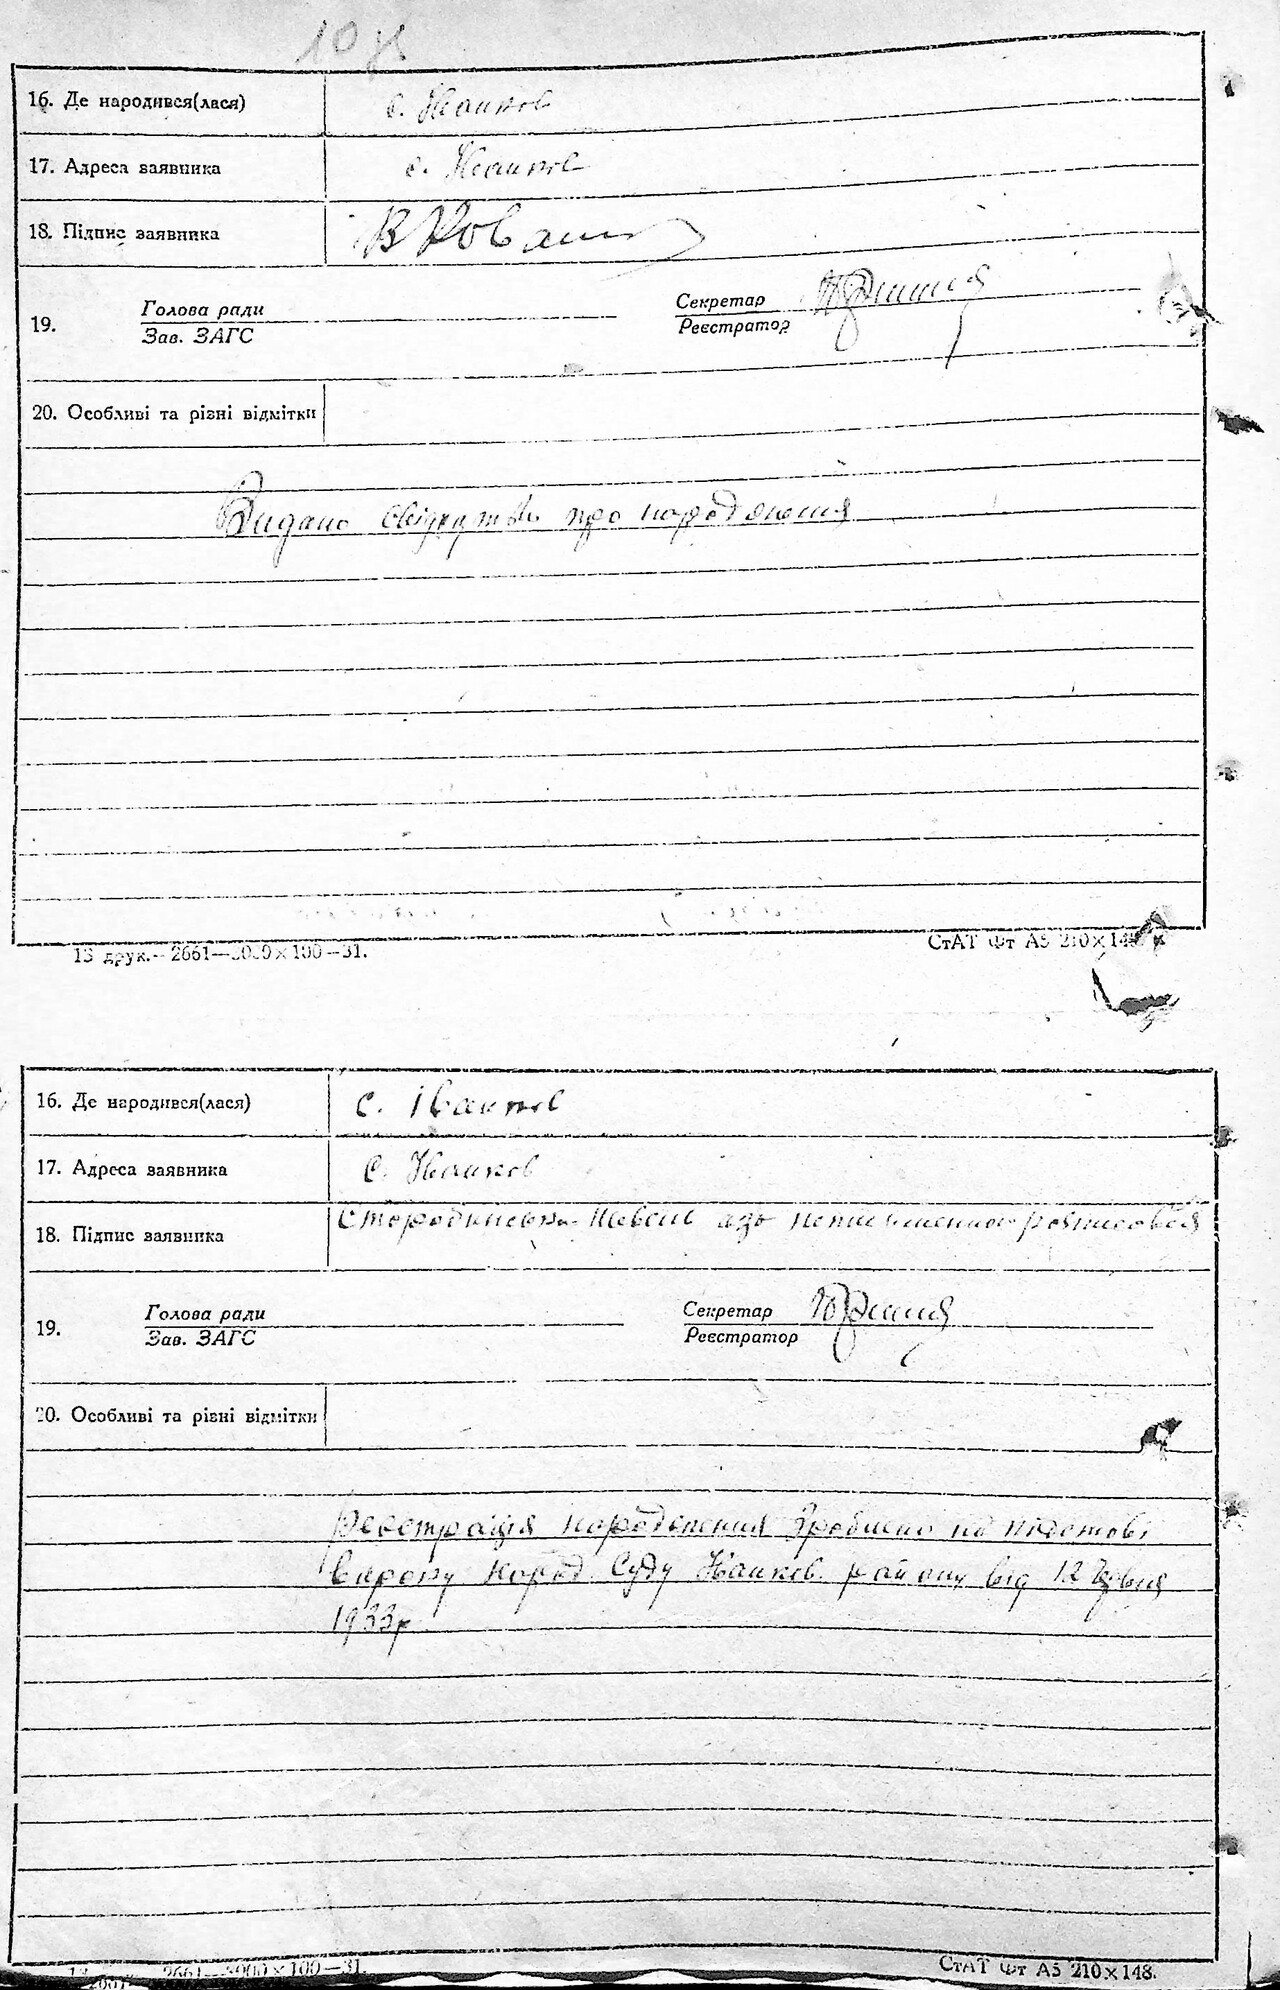 16. Де народився(лася) с. Іванків
17. Адреса заявника с. Іванків
18. Підпис заявника В Кован
19. Голова ради Секретар
Зав. ЗАГС Реєстратор
20. Особливі та різні відмітки
Видано свідоцтво про народження
13 друк.—2661—3000×100—31. СтАТ Фт А5 210×148
16. Де народився(лася) с. Іванків
17. Адреса заявника с. Іванків
18. Підпис заявника неписьменного розписався
19. Голова ради Секретар
Зав. ЗАГС Реєстратор
20. Особливі та різні відмітки
Реєстрація народження зроблено на підставі
вироку народ. Суду Іванків. району від 12 Червня
1933р
2661—3000×100—31. СтАТ Фт А5 210×148.